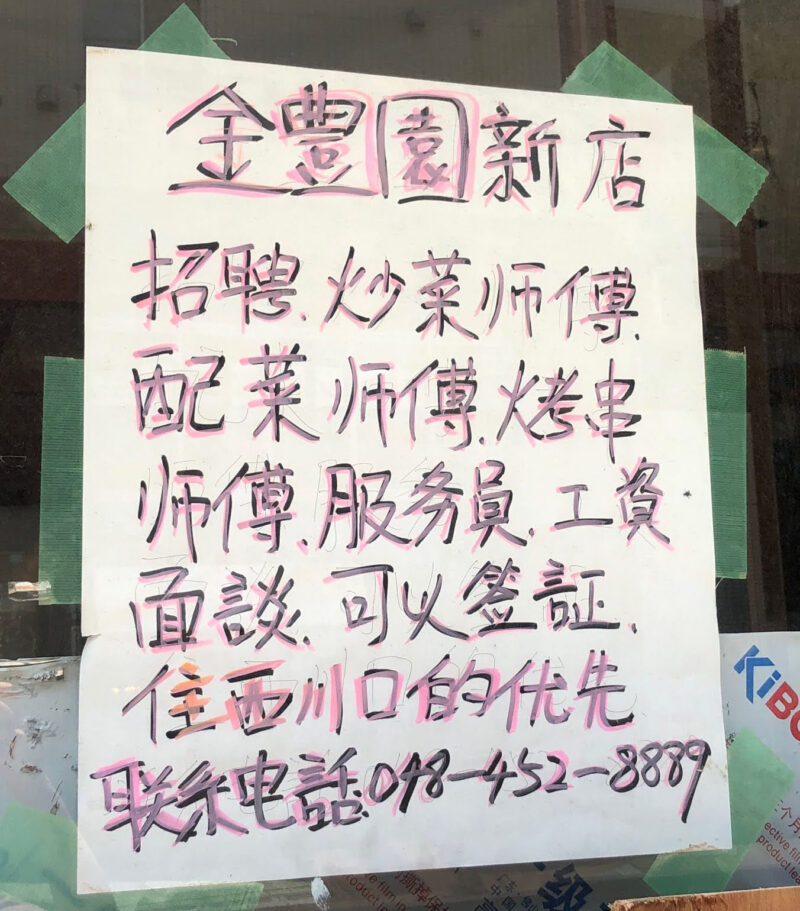 金豐園新店
招聘.炒菜师傅.
配菜师傅.烤串
师傅.服务員.工資
面談.可以签証.
住西川口的优先
联系电話.048-452-8889
KiBO
ective film
product le